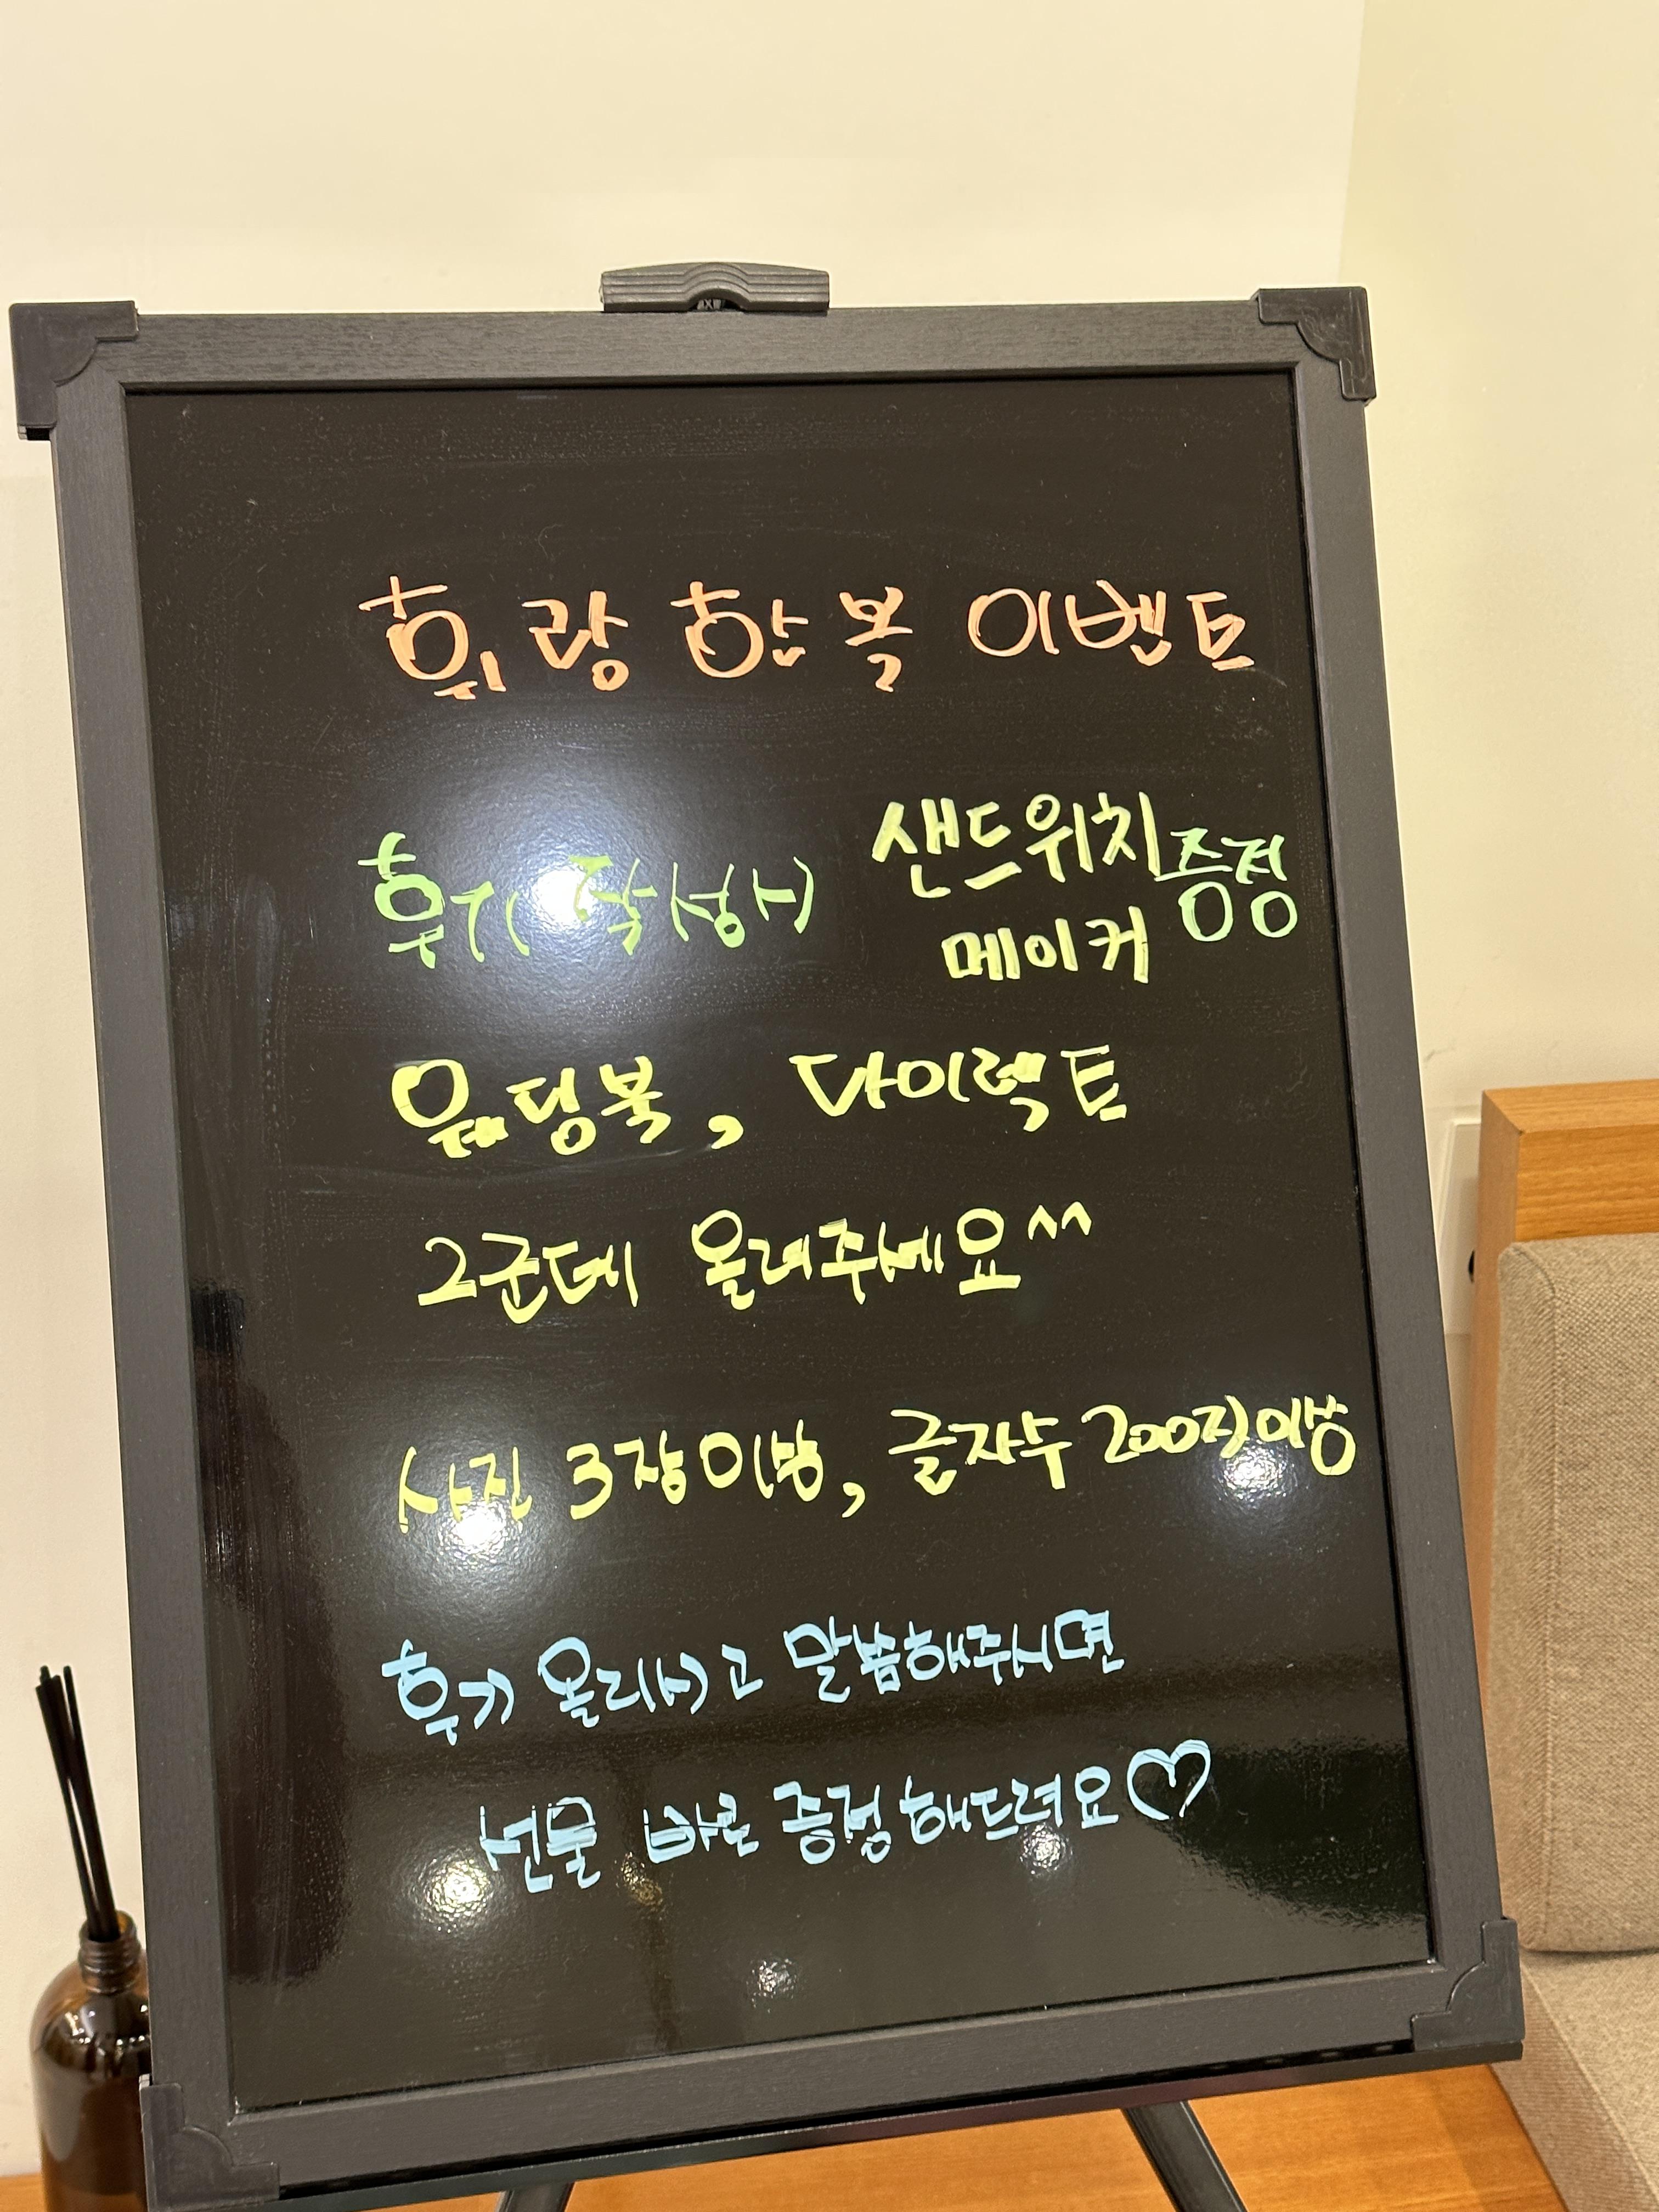 휘랑 한복 이벤트
후기 작성시 샌드위치 메이커 증정
웨딩북, 다이렉트
2군데 올려주세요^^
사진 3장이상, 글자수 200자이상
후기 올리시고 말씀해주시면
선물 바로 증정해드려요♡